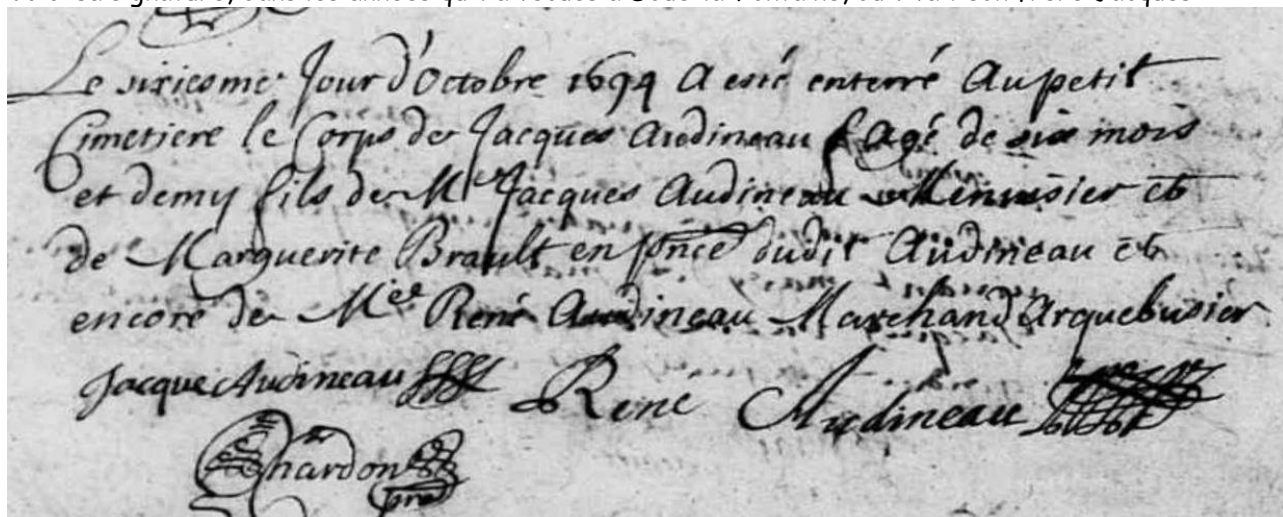 Le sixiesme Jour d'Octobre 1694 a esté enterré Au petit
Cimetiere le Corps de Jacques Audineau agé de six mois
et demy fils de Me Jacques Audineau Menuisier et
de Marguerite Brault en pnce dudit Audineau et
encore de Me René Audineau Marchand Arquebusier
Jacque Audineau René Audineau
Chardon
pre